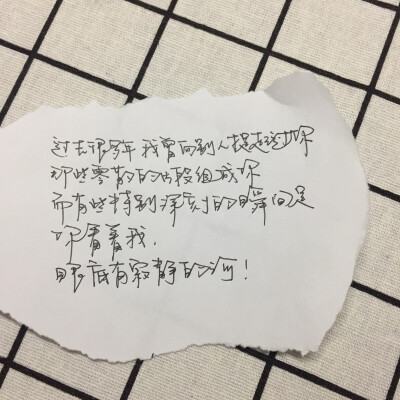 过去很多年 我曾向别人提起过你
那些零散的片段组成你
而有些特别深刻的瞬间是
你看着我，
眼底有寂静的河！